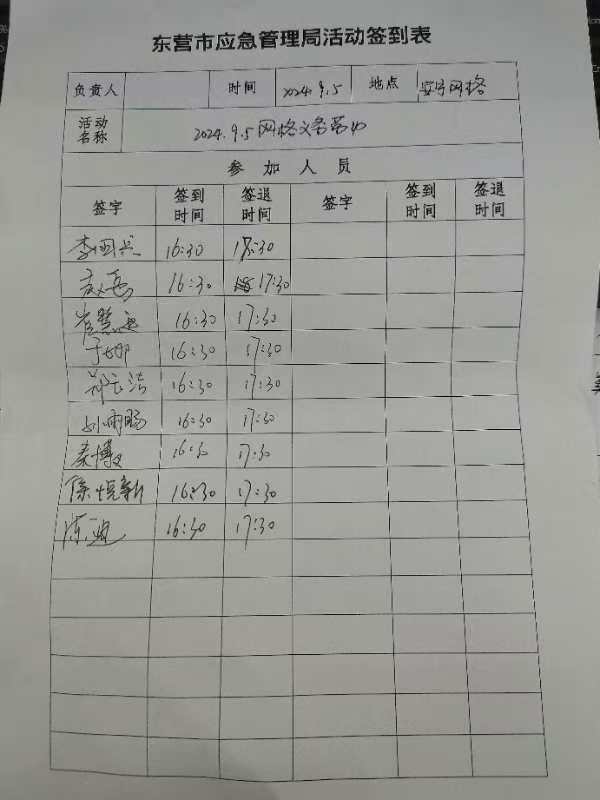 东营市应急管理局活动签到表
负责人 时间 2024.9.5 地点 网格
活动名称 2024.9.5网格义务劳动
参加人员
签字 签到时间 签退时间 签字 签到时间 签退时间
李国兵 16:30 17:30
16:30 17:30
崔慧 16:30 17:30
于娜 16:30 17:30
16:30 17:30
刘雨肠 16:30 17:30
秦博文 16:30 17:30
徐悦新 16:30 17:30
陈迪 16:30 17:30